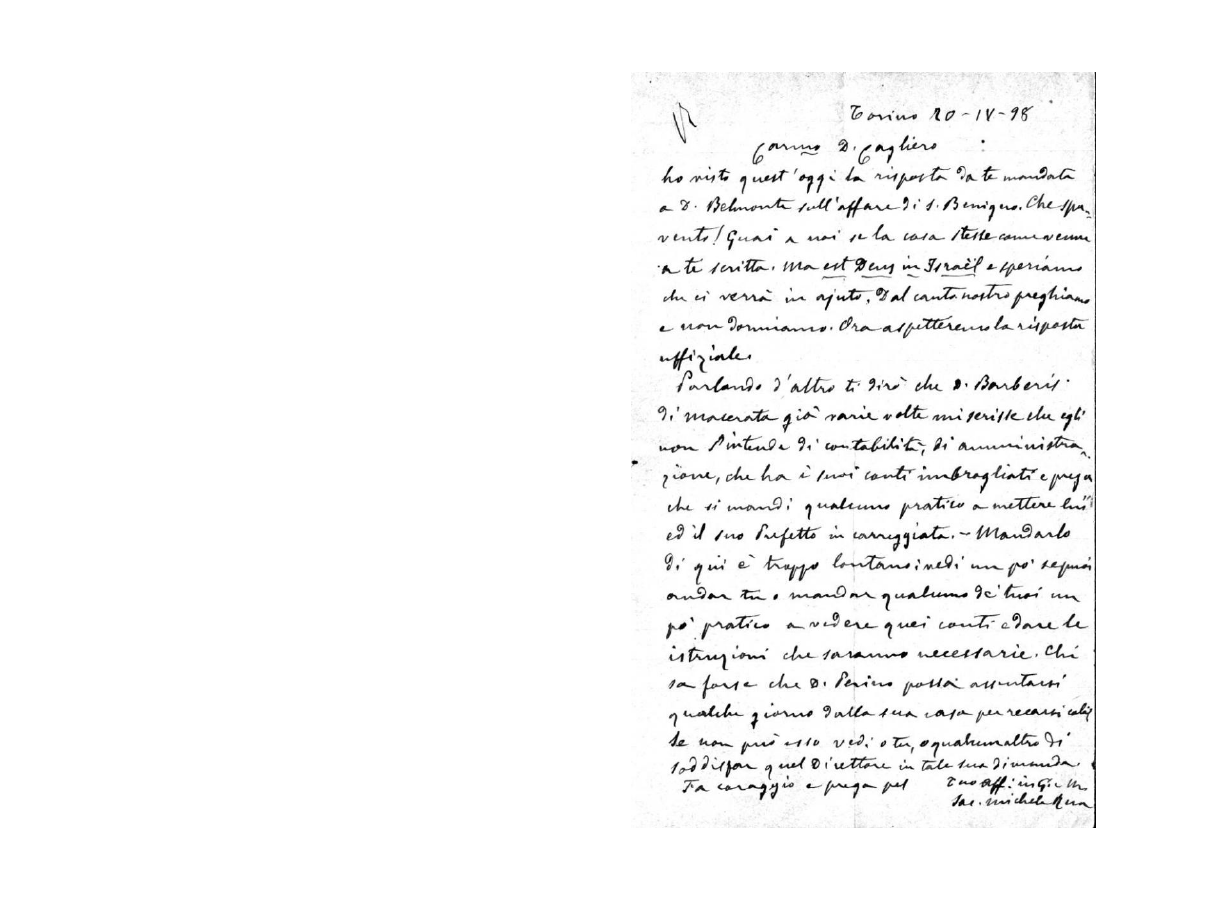 Torino 20-IV-98
Carmo D. Cagliero
ho visto quest'oggi la risposta da te mandata
a D. Belmonte sull'affare di S. Benigno. Che spa-
vento! Guai a noi se la cosa stesse come venne
a te scritta. Ma est Deus in Israël e speriamo
che ci verrà in ajuto. Dal canto nostro preghiamo
e non dormiamo. Ora aspetteremo la risposta
uffiziale.
Parlando d'altro ti dirò che D. Barberis
di Macerata già varie volte mi scrisse che egli
non s'intende di contabilità, di amministra-
zione, che ha i suoi conti imbrogliati e prega
che si mandi qualcuno pratico a mettere lui
ed il suo Prefetto in carreggiata. - Mandarlo
di qui è troppo lontano: vedi un po' se puoi
andar tu o mandar qualcuno de' tuoi un
po' pratico a vedere quei conti e dare le
istruzioni che saranno necessarie. Chi
sa forse che D. Perino possa assentarsi
qualche giorno dalla sua casa per recarsi colà
Se non può esso vedi o tu, o qualcun altro di
soddisfar quel Direttore in tale sua dimanda.
Fa coraggio e prega pel Tuo aff. in G. e M.
Sac. Michele Rua